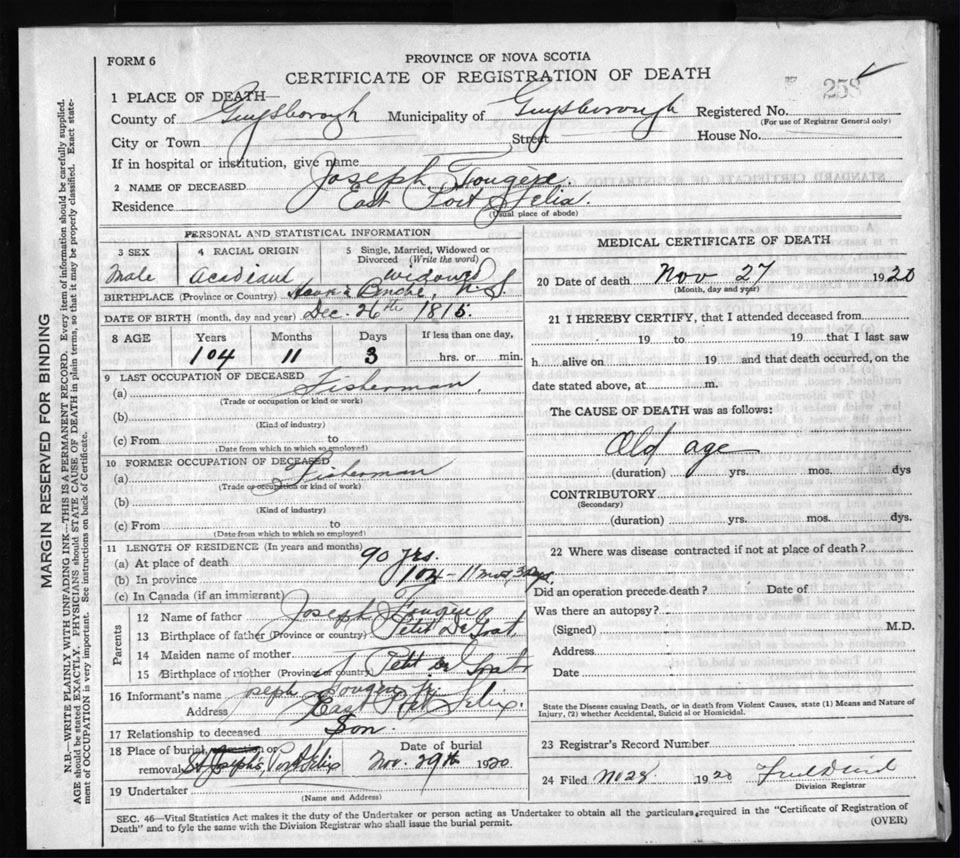 FORM 6
PROVINCE OF NOVA SCOTIA
258
CERTIFICATE OF REGISTRATION OF DEATH
1 PLACE OF DEATH—
County of Guysborough Municipality of Guysborough Registered No.
(For use of Registrar General only)
City or Town Street House No.
If in hospital or institution, give name
2 NAME OF DECEASED Joseph Fougere
Residence East Port Felix.
(Usual place of abode)
PERSONAL AND STATISTICAL INFORMATION
3 SEX 4 RACIAL ORIGIN 5 Single, Married, Widowed or Divorced (Write the word)
Male Acadian widowed
BIRTHPLACE (Province or Country) N.S.
DATE OF BIRTH (month, day and year) Dec. 26th 1815.
8 AGE Years Months Days If less than one day,
104 11 3 hrs. or min.
9 LAST OCCUPATION OF DECEASED
(a) Fisherman
(Trade or occupation or kind or work)
(b)
(Kind of industry)
(c) From to
(Date from which to which so employed)
10 FORMER OCCUPATION OF DECEASED
(a) Fisherman
(Trade or occupation or kind of work)
(b)
(Kind of industry)
(c) From to
(Date from which to which so employed)
11 LENGTH OF RESIDENCE (In years and months)
(a) At place of death 90 yrs.
(b) In province 104 – 11 mos, 3 days.
(c) In Canada (if an immigrant)
Parents
12 Name of father Joseph Fougere
13 Birthplace of father (Province or country) Petit De Grat
14 Maiden name of mother
15 Birthplace of mother (Province or country) Petit De Grat
16 Informant's name Joseph Fougere Jr
Address East Port Felix.
17 Relationship to deceased Son
18 Place of burial, cremation or removal St Joseph's, Port Felix Date of burial Nov. 29th 1920
19 Undertaker
(Name and Address)
MEDICAL CERTIFICATE OF DEATH
20 Date of death Nov 27 1920
(Month, day and year)
21 I HEREBY CERTIFY, that I attended deceased from
19 to 19 that I last saw
h alive on 19 and that death occurred, on the
date stated above, at m.
The CAUSE OF DEATH was as follows:
Old age
(duration) yrs. mos. dys
CONTRIBUTORY
(Secondary)
(duration) yrs. mos. dys.
22 Where was disease contracted if not at place of death?
Did an operation precede death? Date of
Was there an autopsy?
(Signed) M.D.
Address
Date
State the Disease causing Death, or in death from Violent Causes, state (1) Means and Nature of
Injury, (2) whether Accidental, Suicidal or Homicidal.
23 Registrar's Record Number
24 Filed No 28 1920
Division Registrar
SEC. 46—Vital Statistics Act makes it the duty of the Undertaker or person acting as Undertaker to obtain all the particulars required in the "Certificate of Registration of
Death" and to fyle the same with the Division Registrar who shall issue the burial permit. (OVER)
MARGIN RESERVED FOR BINDING
N.B.—WRITE PLAINLY WITH UNFADING INK—THIS IS A PERMANENT RECORD. Every item of information should be carefully supplied.
AGE should be stated EXACTLY. PHYSICIANS should STATE CAUSE OF DEATH in plain terms, so that it may be properly classified. Exact state-
ment of OCCUPATION is very important. See instructions on back of Certificate.